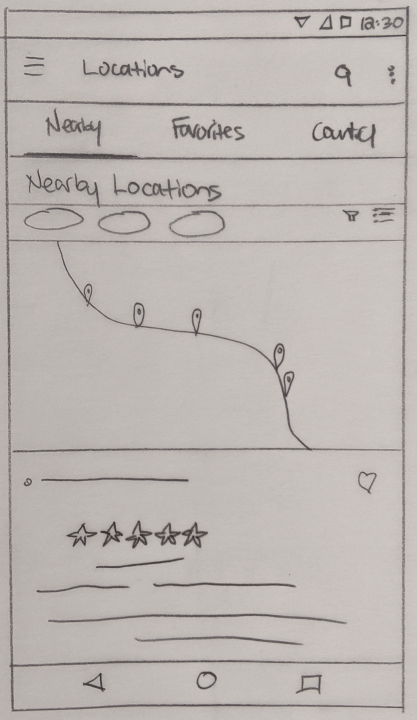 12:30
Locations
Nearby Favorites
Nearby Locations